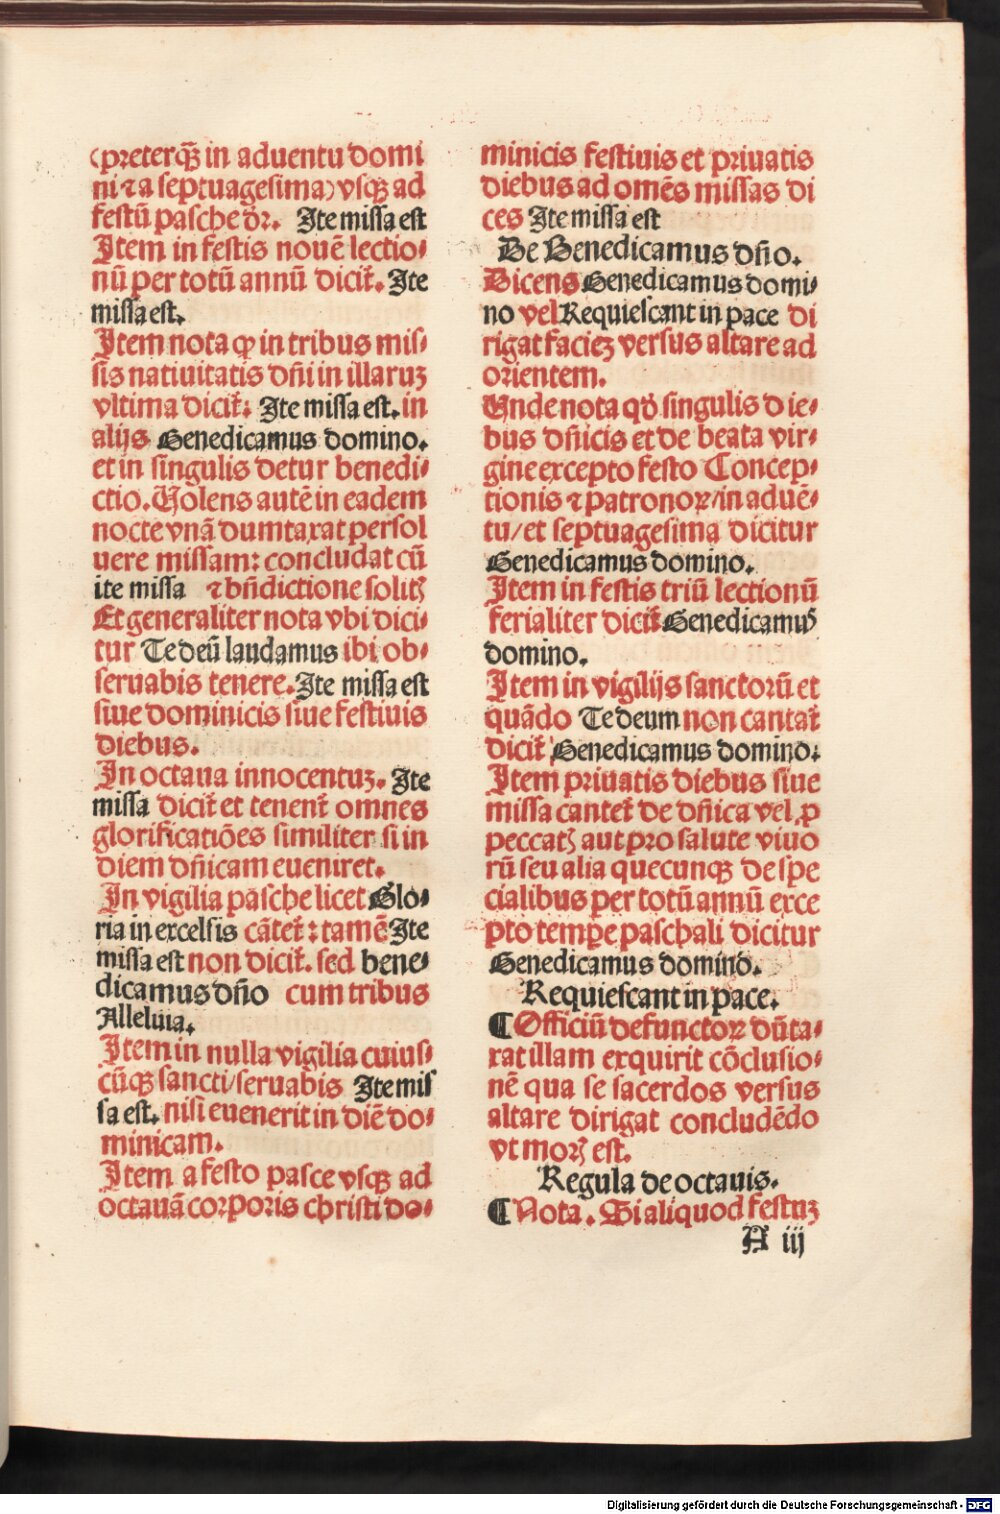 (preterqȝ in aduentu domi
ni ⁊ a septuagesima) vsqȝ ad
festū pasche dr̄. Ite missa est
Item in festis nouē lectio⸗
nū per totū annū dicit̄. Ite
missa est.
Item nota ꝙ in tribus mis⸗
sis natiuitatis dn̄i in illaruȝ
vltima dicit̄: Ite missa est. in
alijs Benedicamus domino.
et in singulis detur benedi⸗
ctio. Volens autē in eadem
nocte vnā dumtaxat persol
uere missam: concludat cū
ite missa ⁊ bn̄dictione solitꝭ
Et generaliter nota vbi dici⸗
tur Te deū laudamus ibi ob⸗
seruabis tenere. Ite missa est
siue dominicis siue festiuis
diebus.
In octaua innocentuȝ. Ite
missa dicit̄ et tenent̄ omnes
glorificatiōes similiter si in
diem dn̄icam eueniret.
In vigilia pasche licet Glo⸗
ria in excelsis cātet̄: tamē Ite
missa est non dicit̄. sed bene⸗
dicamus dn̄o cum tribus
Alleluia.
Item in nulla vigilia cuius⸗
cūqȝ sancti/seruabis Ite mis
sa est. nisi euenerit in diē do⸗
minicam.
Item a festo pasce vsqȝ ad
octauā corporis christi do⸗
minicis festiuis et priuatis
diebus ad omēs missas di
ces Ite missa est
De Benedicamus dn̄o.
Dicens Benedicamus domi⸗
no vel Requiescant in pace di
rigat facieȝ versus altare ad
orientem.
Vnde nota qđ singulis die⸗
bus dn̄icis et de beata vir⸗
gine excepto festo Concep⸗
tionis ⁊ patronoꝝ/in aduē⸗
tu/et septuagesima dicitur
Benedicamus domino.
Item in festis triū lectionū
ferialiter dicit̄ Benedicamꝰ
domino.
Item in vigilijs sanctorū et
quādo Te deum non cantat̄
dicit̄ Benedicamus domino.
Item priuatis diebus siue
missa cantet̄ de dn̄ica vel ꝓ
peccatꝭ aut pro salute viuo
rū seu alia quecunqȝ de spe
cialibus per totū annū exce
pto tempe paschali dicitur
Benedicamus domino.
Requiescant in pace.
¶ Officiū defunctoꝝ dūta⸗
rat illam exquirit cōclusio⸗
nē qua se sacerdos versus
altare dirigat concludēdo
vt morꝭ est.
Regula de octauis.
¶ Nota. Si aliquod festuȝ
A iij
Digitalisierung gefördert durch die Deutsche Forschungsgemeinschaft - DFG